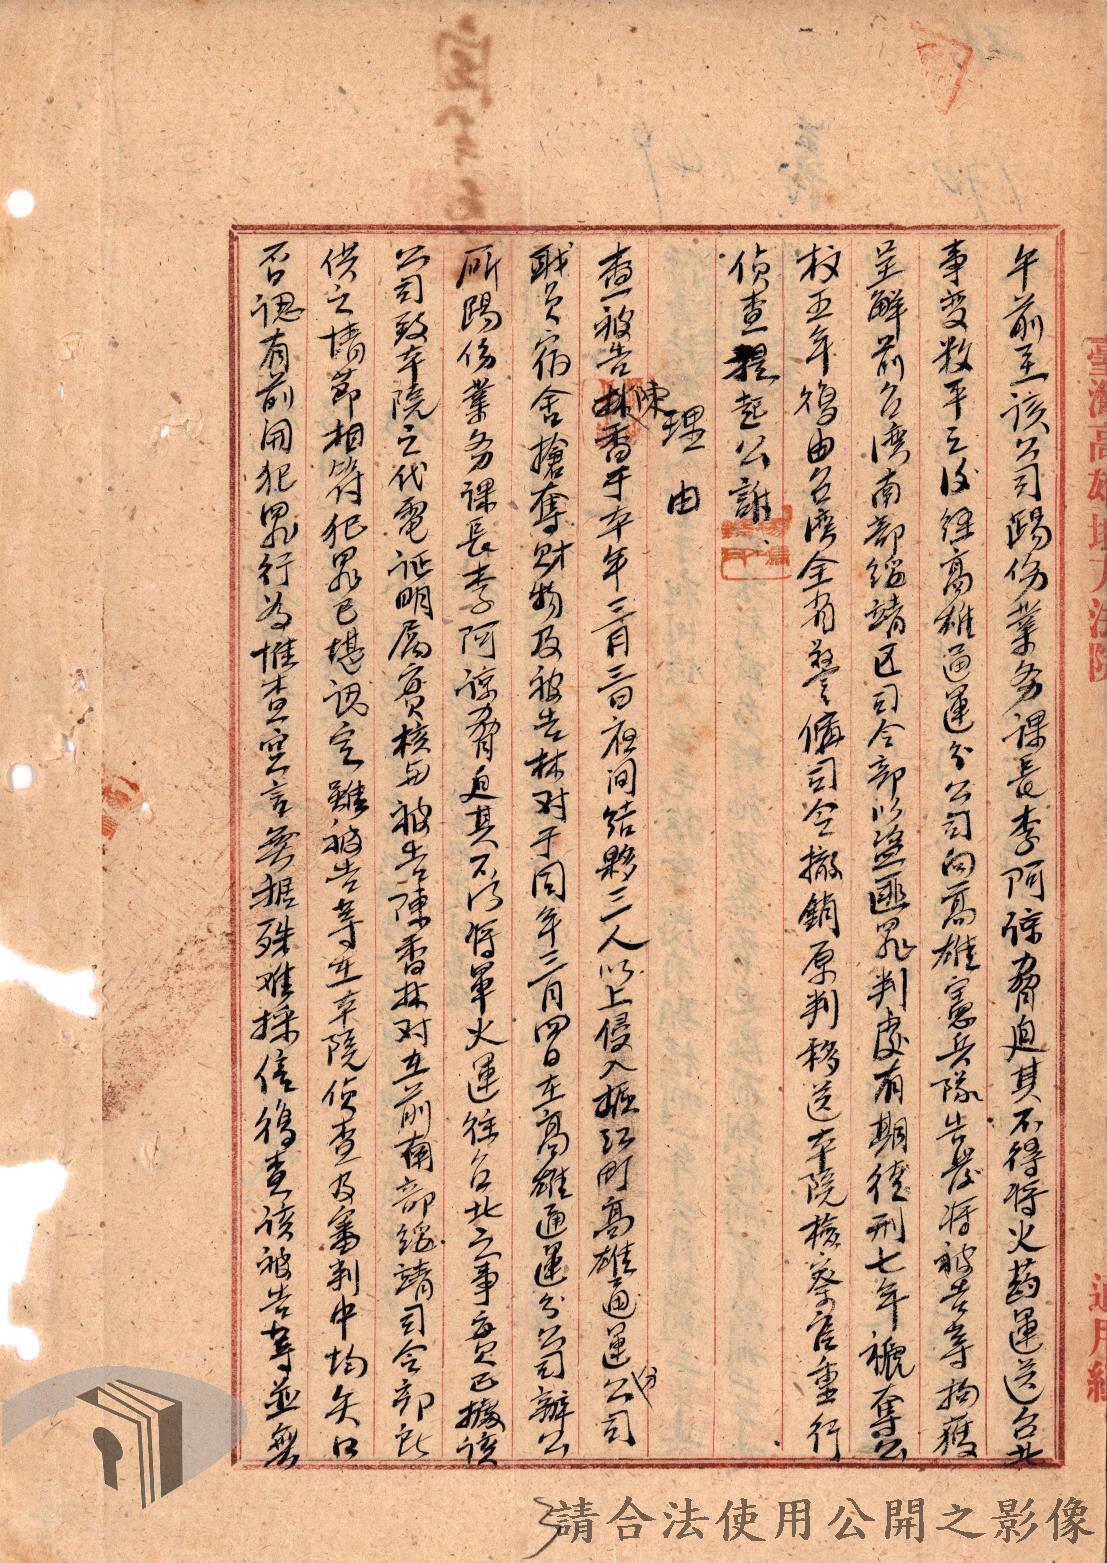 午前至該公司賜伤業务課長李阿諒脅迫其不得將火葯運送台北
事变救平之後經高雄通運分公司向高雄憲兵隊告發将被告等拘獲
呈解前台湾南部綏靖区司令部以盗匪罪判處有期徒刑七年褫奪公
权五年復由台湾全省警備司令撤銷原判移送本院檢察官重行
偵查提起公訴、
理由
查被告陳香于本年三月三日夜间结夥三人以上侵入振江町高雄通運分公司
職员宿舍搶奪财物及被告林对于同年三月四日在高雄通運分公司辦公
所賜伤業务課長李阿諒脅迫其不得将軍火運往台北之事实已據該
公司致本院之代電证明属实核与被告陳香林对在前南部綏靖司令部所
供之情節相符犯罪已堪认定雖被告等在本院偵查及審判中均矢口
否認有前開犯罪行为惟查空言無据殊难採信復查該被告等並無
臺灣高雄地方法院
通用紙
請合法使用公開之影像